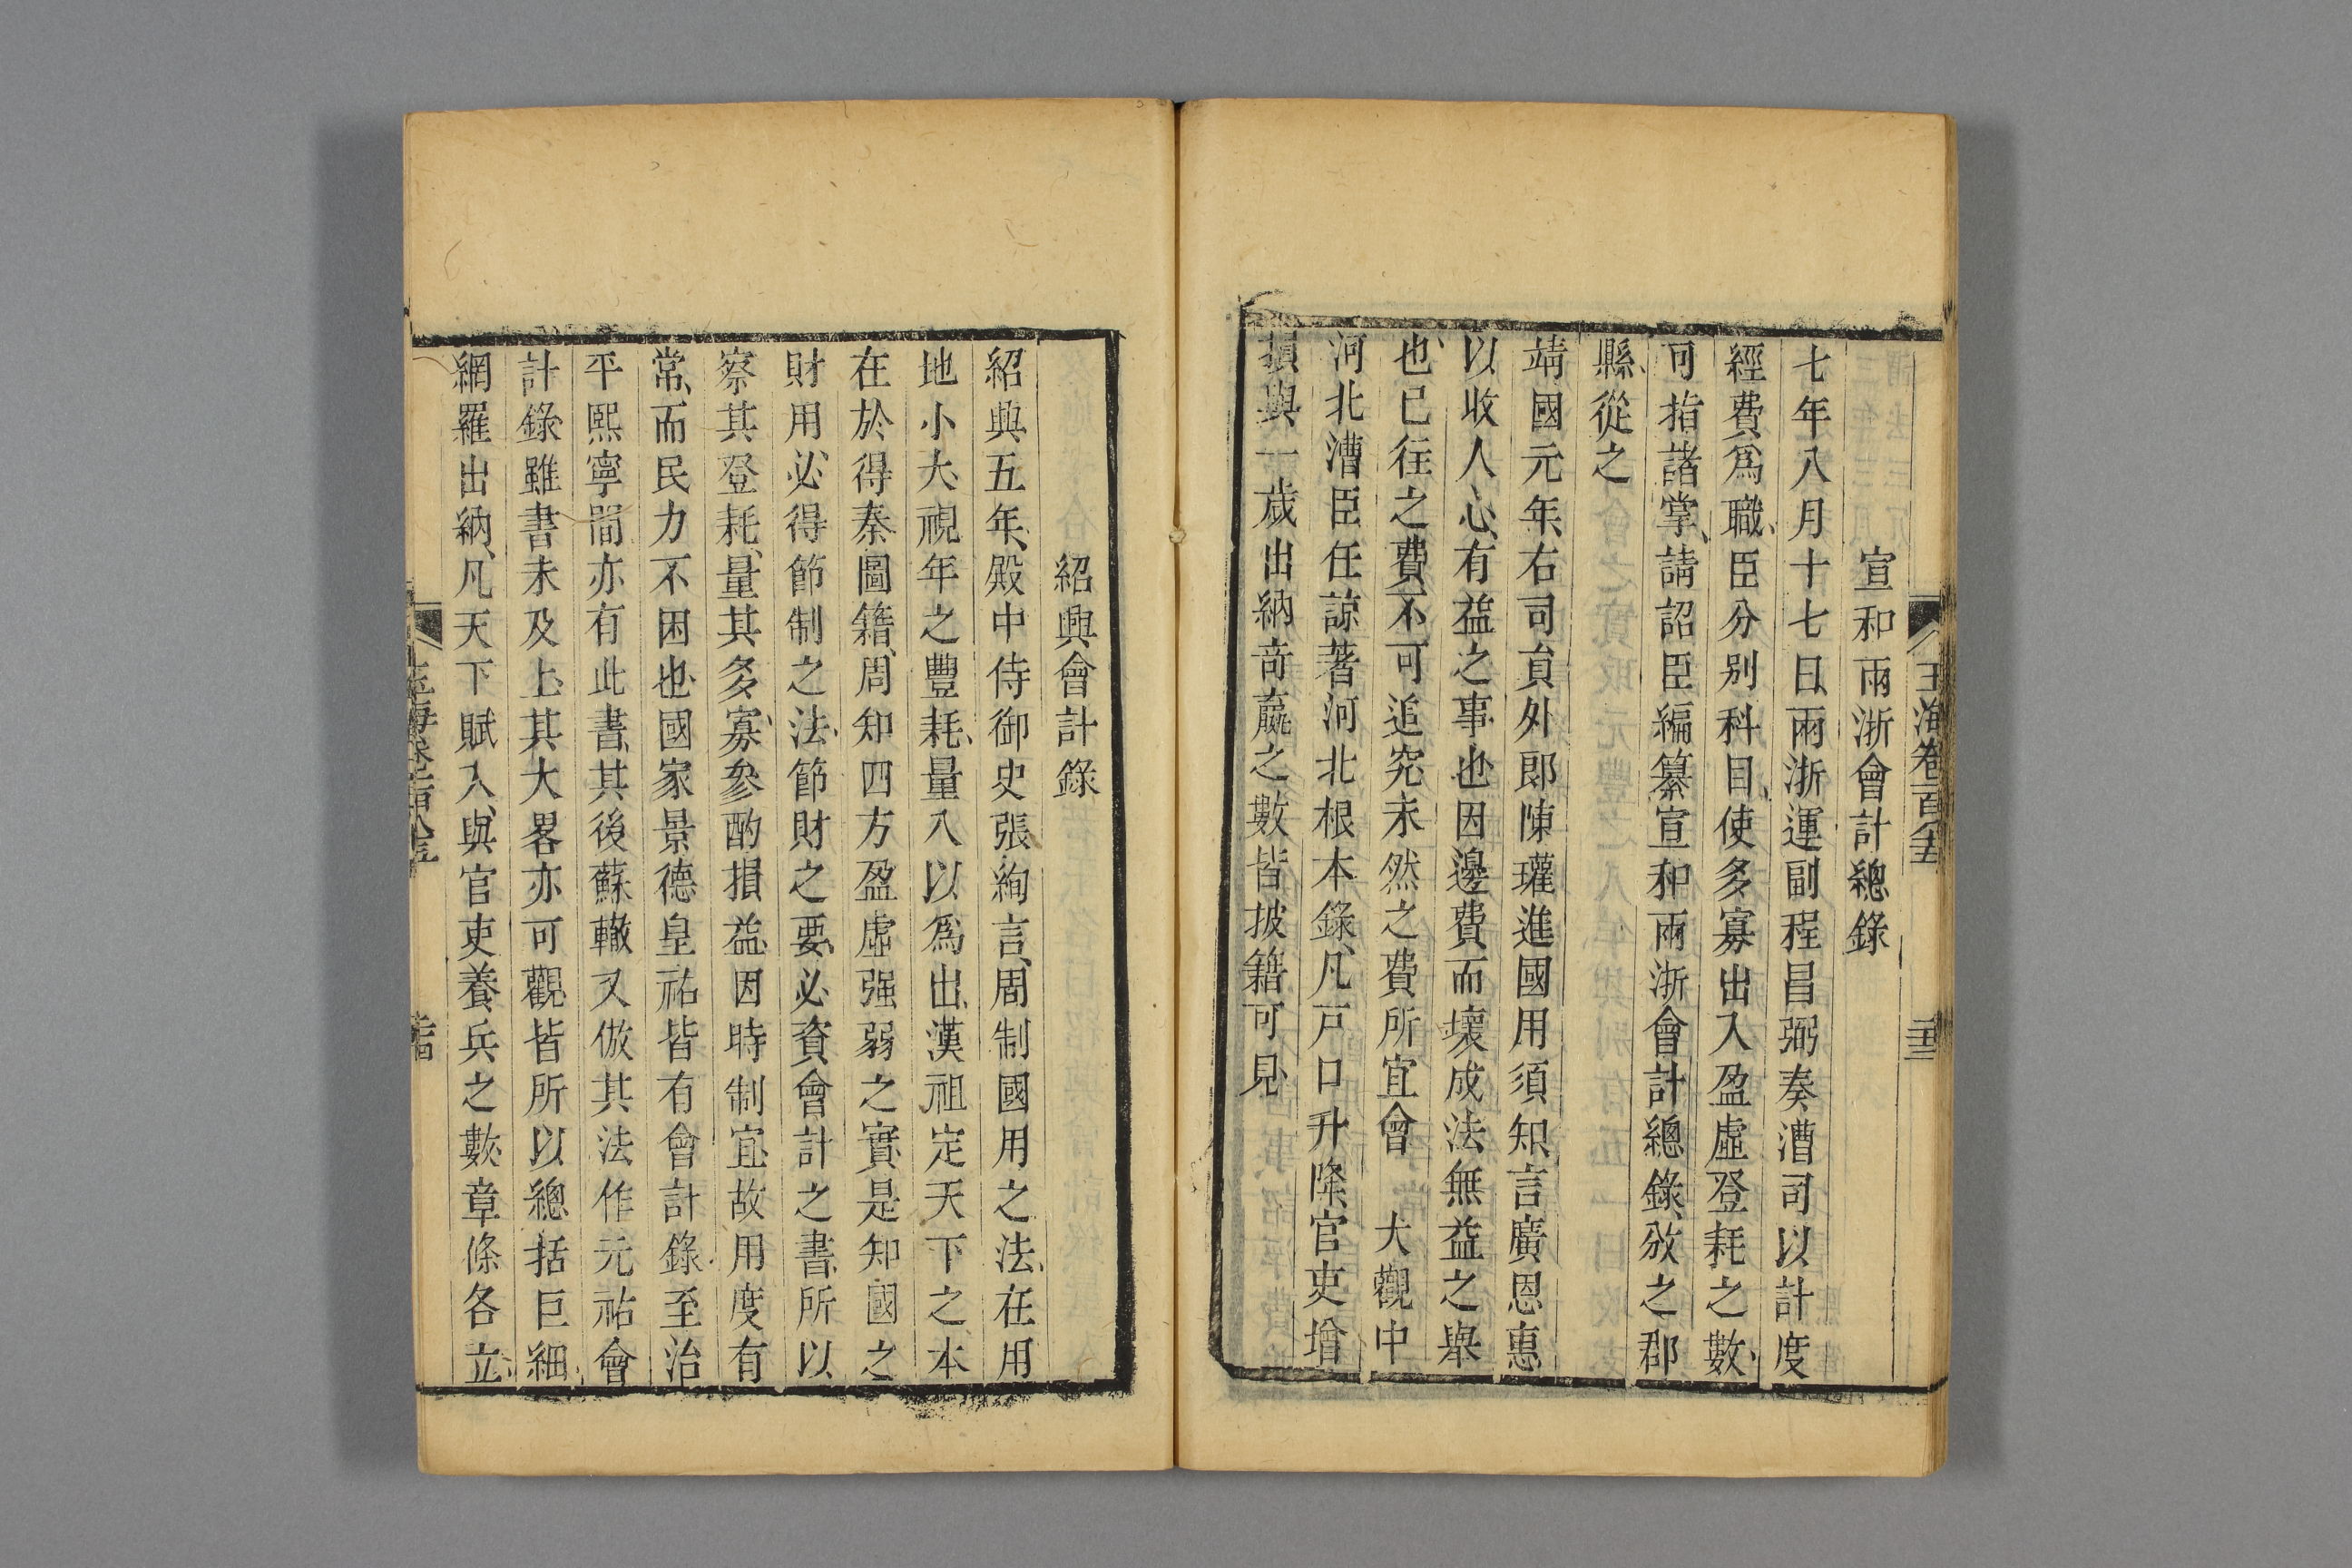 玉海卷一百八十五
三十三
宣和兩浙會計總錄
七年八月十七日兩浙運副程昌弼奏漕司以計度
經費爲職臣分别科目使多寡出入盈虛登耗之數
可指諸掌請詔臣編纂宣和兩浙會計總錄放之郡
縣從之
靖國元年右司員外郎陳瓘進國用須知言廣恩惠
以收人心有益之事也因邊費而壞成法無益之舉
也已往之費不可追究未然之費所宜會 大觀中
河北漕臣任諒著河北根本錄凡戸口升降官吏增
損與一歲出納奇羸之數皆披籍可見
紹興會計錄
紹興五年殿中侍御史張絢言周制國用之法在用
地小大視年之豐耗量入以爲出漢祖定天下之本
在於得秦圖籍周知四方盈虛强弱之實是知國之
財用必得節制之法節財之要必資會計之書所以
察其登耗量其多寡參酌損益因時制宜故用度有
常而民力不困也國家景德皇祐皆有會計錄至治
平熙寧間亦有此書其後蘇轍又倣其法作元祐會
計錄雖書未及上其大畧亦可觀皆所以總括巨細
網羅出納凡天下賦入與官吏養兵之數章條各立
玉海卷一百八十五